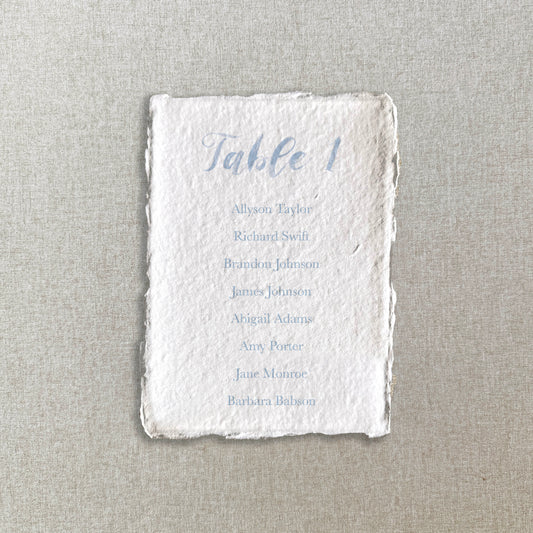 Table 1
Allyson Taylor
Richard Swift
Brandon Johnson
James Johnson
Abigail Adams
Amy Porter
Jane Monroe
Barbara Babson